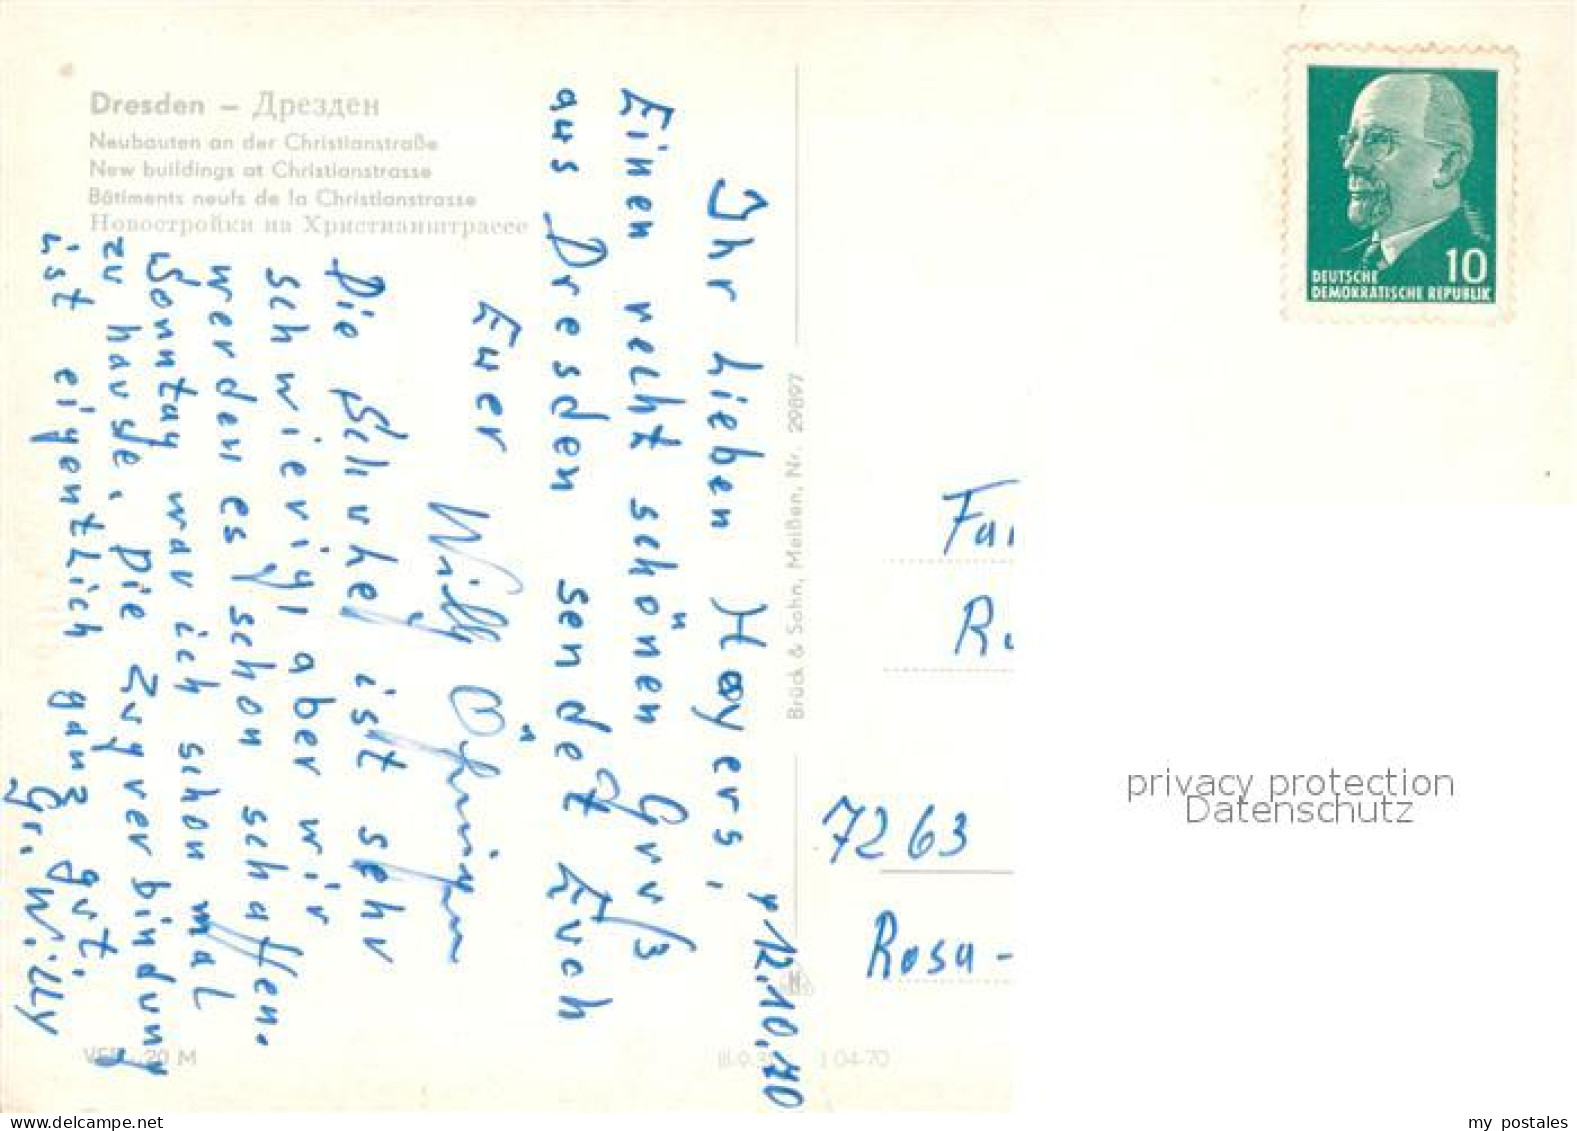 Dresden – Дрезден
Neubauten an der Christianstraße
New buildings at Christianstrasse
Bâtiments neufs de la Christianstrasse
Новостройки на Христианштрассе
12.10.70
Ihr lieben Hoyers,
Einen recht schönen Gruß
aus Dresden sendet Euch
Euer
Willy
Die Schule ist sehr
schwierig, aber wir
werden es schon schaffen.
Sonntag war ich schon mal
zu hause. Die Zugverbindung
ist eigentlich ganz gut.
Gr. Willy
Brück & Sohn, Meißen, Nr. 29897
20 M
1 04-70
10
DEUTSCHE
DEMOKRATISCHE REPUBLIK
Fa
R
7263
Rosa-
privacy protection
Datenschutz
my postales